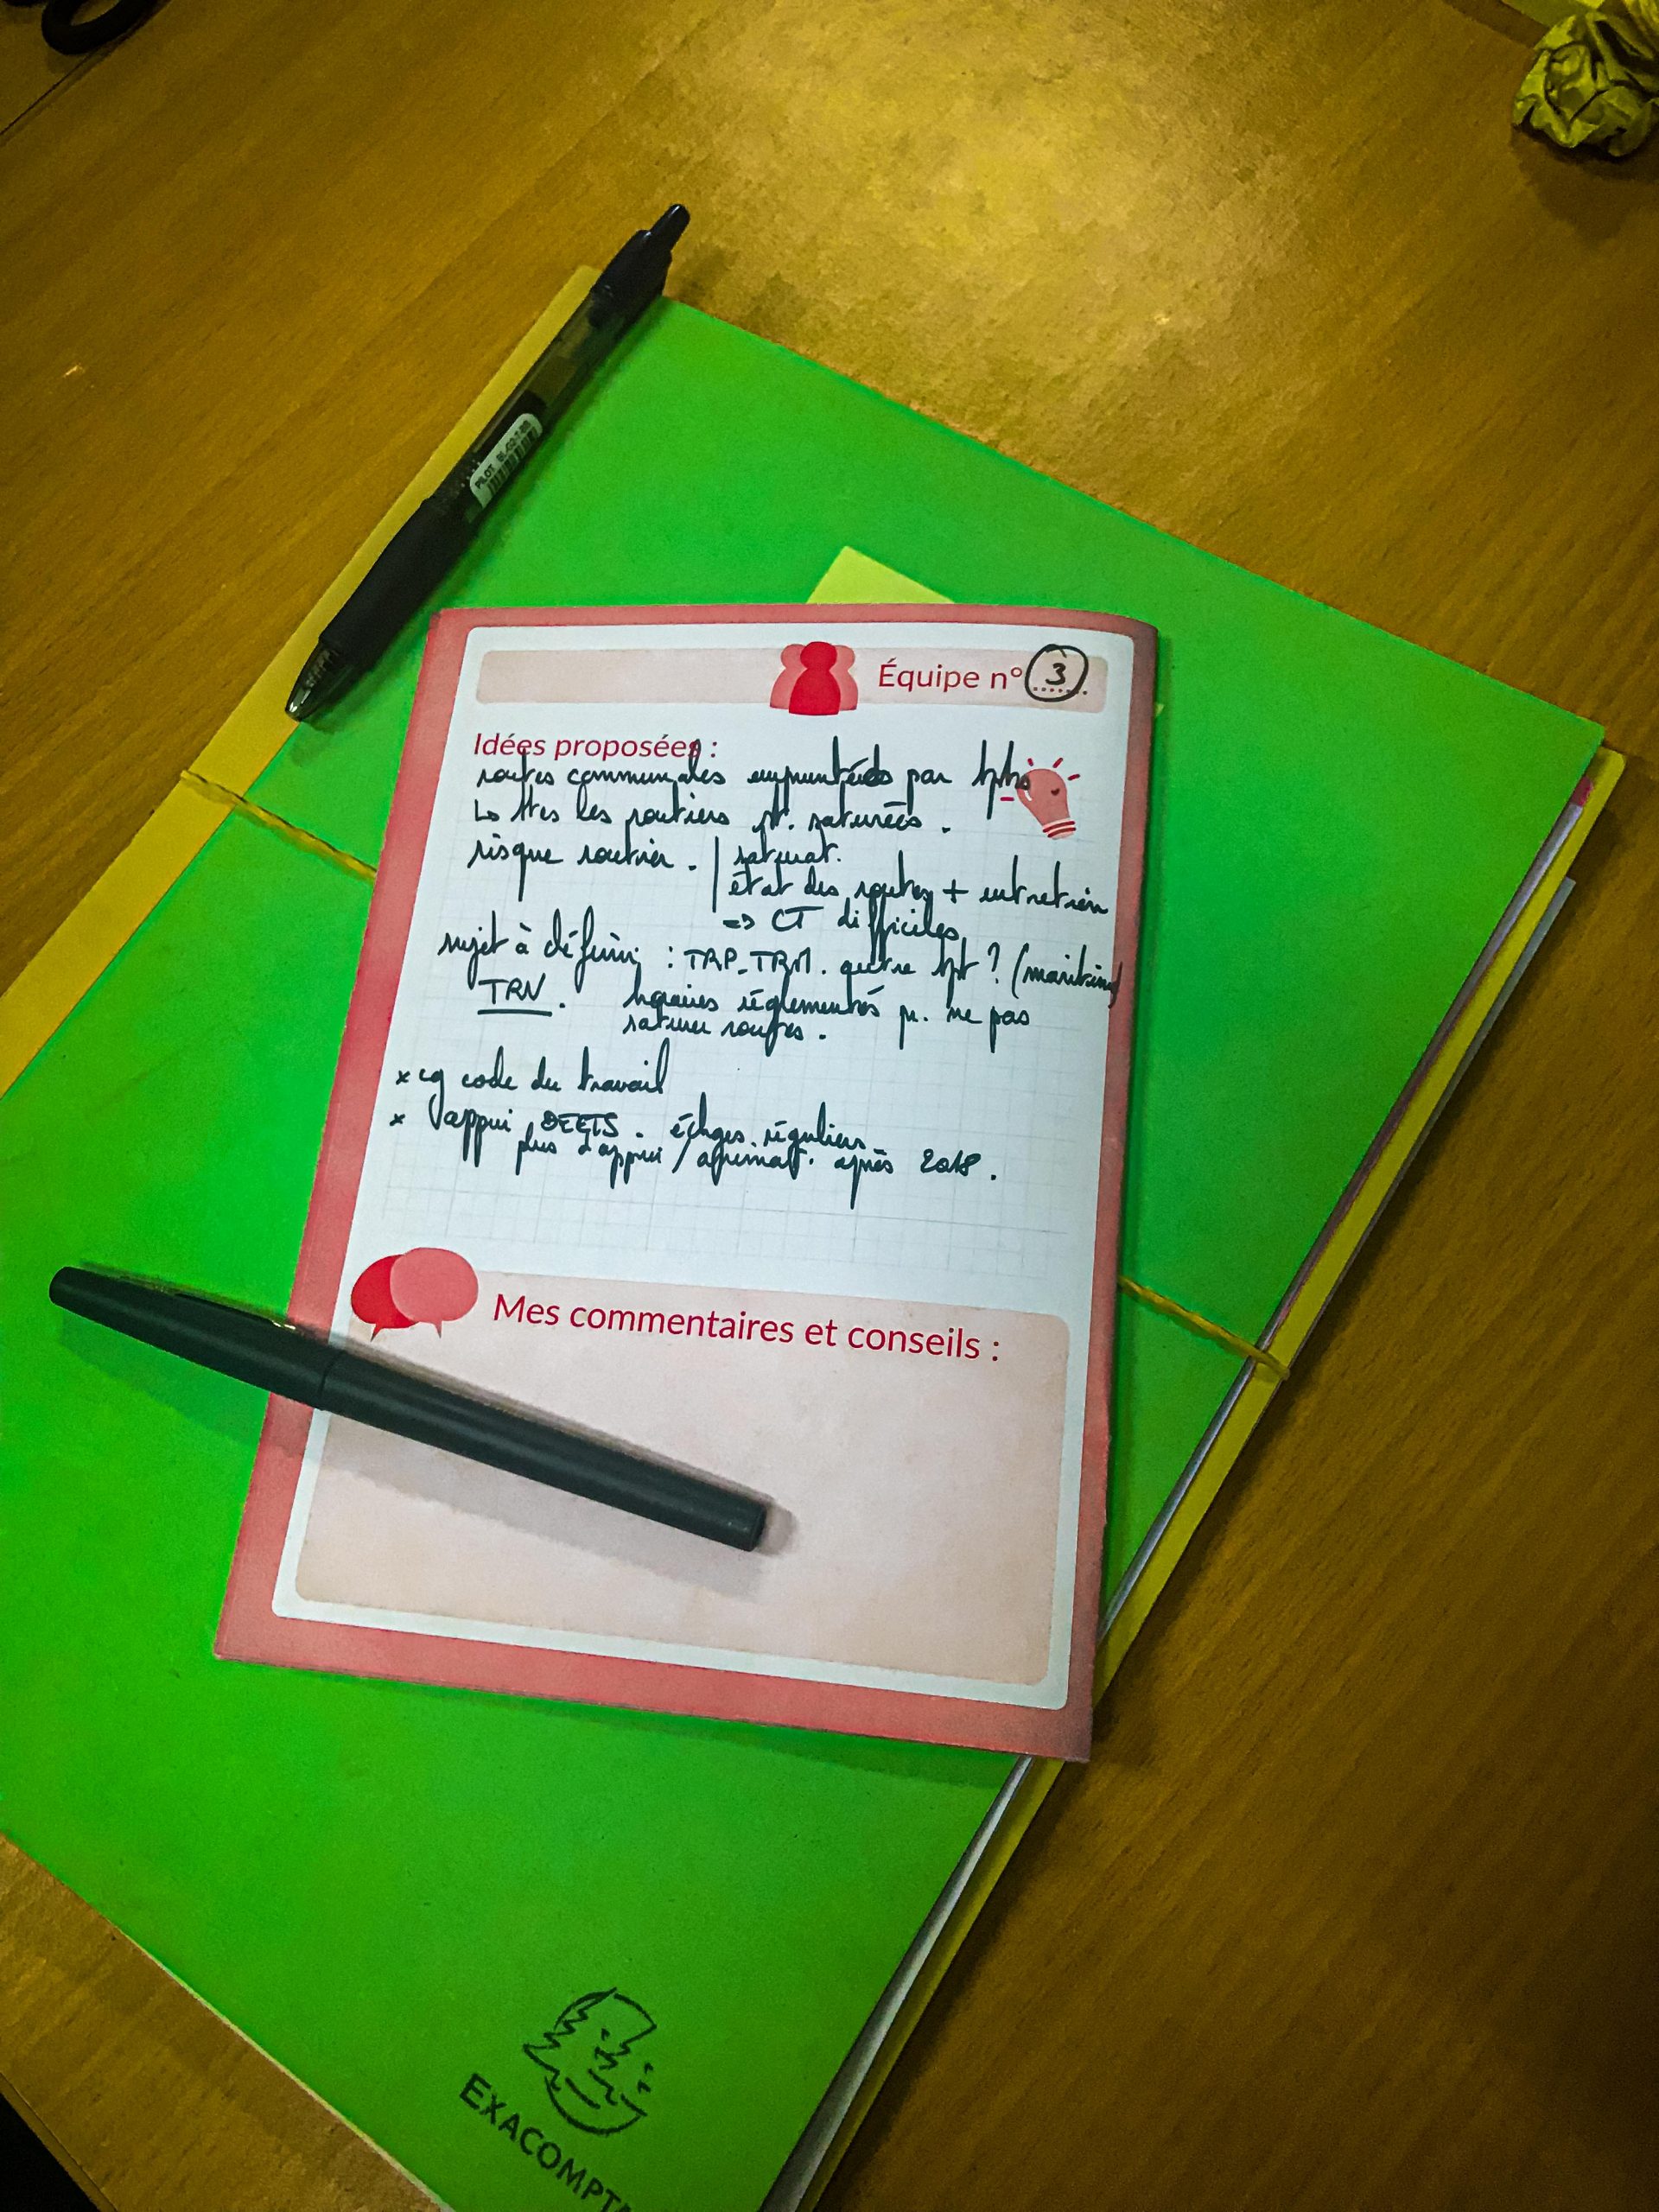 PILOT BL-G2-7-BB
Équipe n° 3
Idées proposées :
routes communales empruntées par
Lo ttes les routiers st. saturées.
risque routier. | saturat.
état des routes + entretien
=> CT difficiles
sujet à définir : TRP_TRM. quitre tpt ? (maritime)
TRV. horaires réglementés pr. ne pas
saturer routes.
x cg code du travail
x appui DEETS. échges. réguliers
plus d'appui / après 2018.
Mes commentaires et conseils :
EXACOMPTA